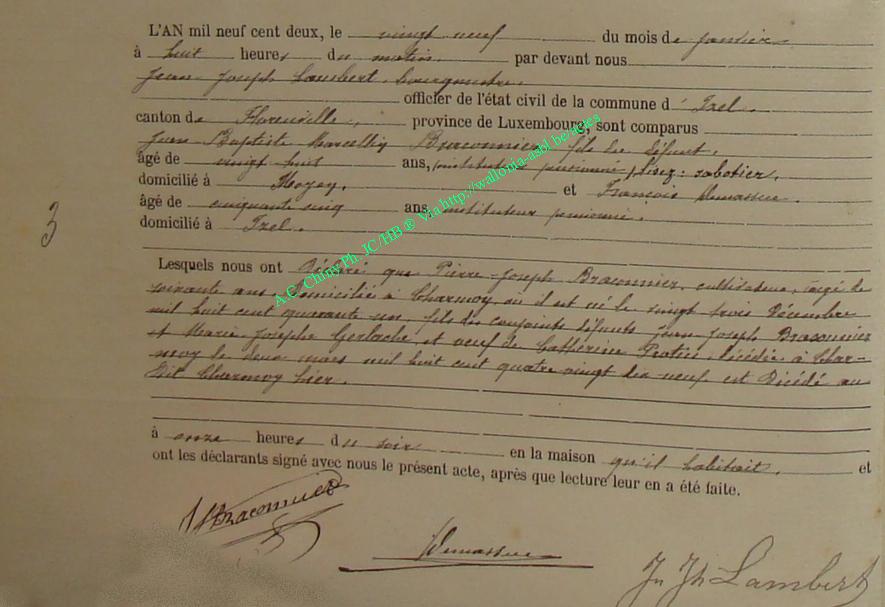 L'AN mil neuf cent deux, le vingt neuf du mois de janvier
à huit heures du matin par devant nous
Jean Joseph Lambert, bourgmestre
officier de l'état civil de la commune d' Izel.
canton de Florenville, province de Luxembourg, sont comparus
Jean Baptiste Marcellin Braconnier, fils du défunt,
âgé de vingt huit ans, (instituteur pensionné) lisez: sabotier,
domicilié à Moyen, et François Demasscu.
âgé de cinquante cinq ans, instituteur pensionné,
domicilié à Izel.
3
Lesquels nous ont déclaré que Pierre-Joseph Braconnier, cultivateur, âgé de
soixante ans, domicilié à Charmoy, où il est né le vingt trois Décembre
mil huit cent quarante un, fils des conjoints défunts Jean Joseph Braconnier
et Marie Josephe Gerlache, et veuf de Catherine décédée à Char-
moy le deux mars mil huit cent quatre vingt dix-neuf est décédé au
dit Charmoy hier.
à onze heures du soir en la maison qu'il habitait, et
ont les déclarants signé avec nous le présent acte, après que lecture leur en a été faite.
Braconnier
Jn Jh Lambert
A.C. Chiny Ph. JC/HB ® Via http://wallonia-asbl.be/actes